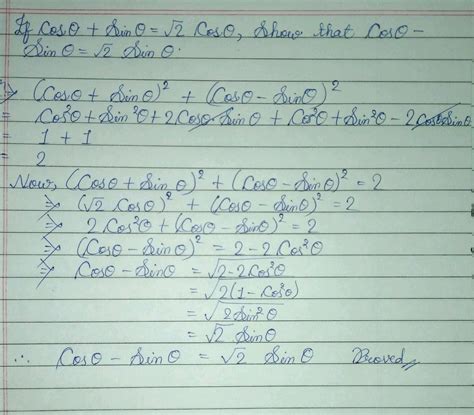 If Cosθ + Sinθ = √2 Cosθ, Show that Cosθ -
Sinθ = √2 Sinθ.
⇒ (Cosθ + Sinθ)² + (Cosθ - Sinθ)²
= Cos²θ + Sin²θ + 2Cosθ Sinθ + Cos²θ + Sin²θ - 2Cosθ Sinθ
= 1 + 1
= 2
Now, (Cosθ + Sinθ)² + (Cosθ - Sinθ)² = 2
⇒ (√2 Cosθ)² + (Cosθ - Sinθ)² = 2
⇒ 2Cos²θ + (Cosθ - Sinθ)² = 2
⇒ (Cosθ - Sinθ)² = 2 - 2Cos²θ
⇒ Cosθ - Sinθ = √2-2Cos²θ
= √2(1 - Cos²θ)
= √2Sin²θ
= √2 Sinθ
∴ Cosθ - Sinθ = √2 Sinθ Proved